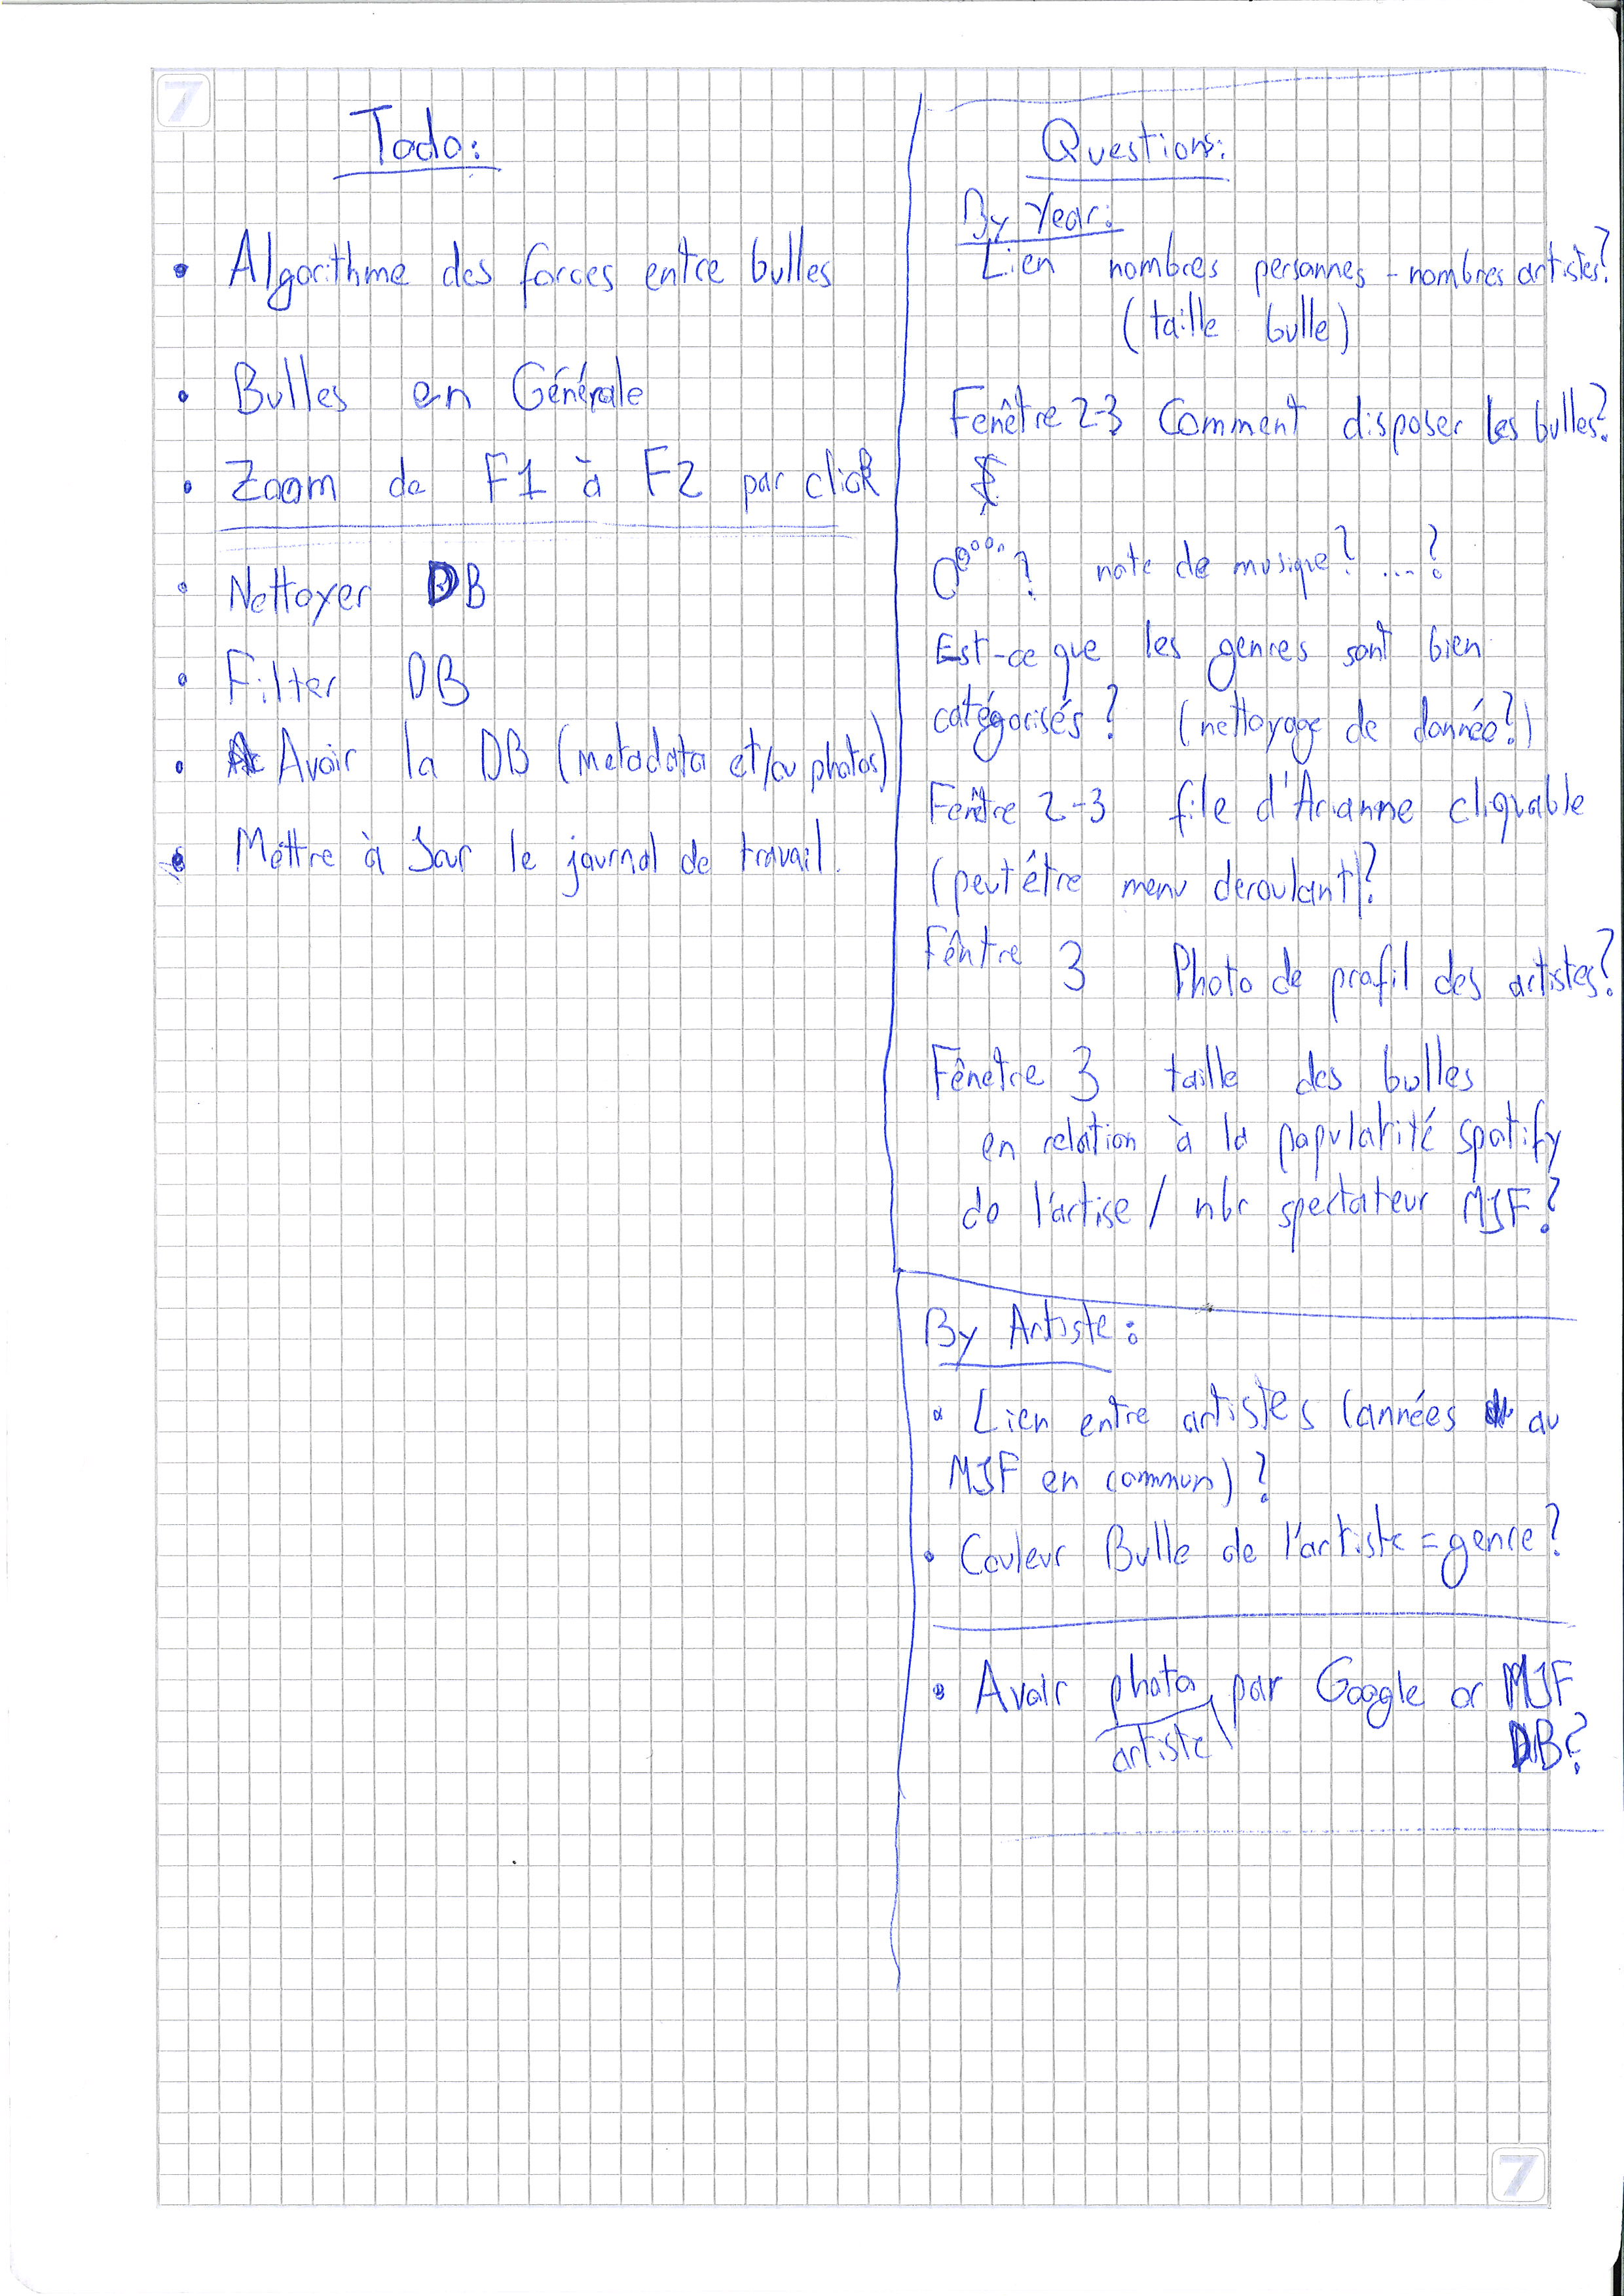 7
Todo:
• Algorithme des forces entre bulles
• Bulles en Générale
• Zoom de F1 à F2 par click
• Nettoyer DB
• Filter DB
• Avoir la DB (metadata et/ou photos)
• Méttre à Jour le journal de travail.
Questions:
By Year:
Lien nombres personnes - nombres artistes?
(taille bulle)
Fenêtre 2-3 Comment disposer les bulles?
? note de musique? ...?
Est-ce que les genres sont bien
catégorisés? (nettoyage de donnée?)
Fenêtre 2-3 file d'Arianne cliquable
(peut être menu deroulant)?
Fêntre 3 Photo de profil des artistes?
Fênetre 3 taille des bulles
en relation à la popularité spotify
de l'artise / nbr spectateur MJF?
By Artiste:
• Lien entre artistes (années au
MJF en commun)?
• Couleur Bulle de l'artiste = genre?
• Avoir photo par Google or MJF
artiste DB?
7